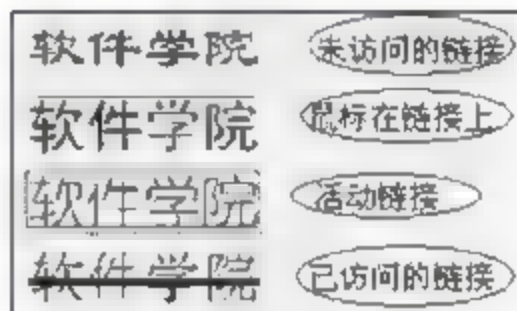 软件学院 未访问的链接
软件学院 鼠标在链接上
软件学院 活动链接
软件学院 已访问的链接